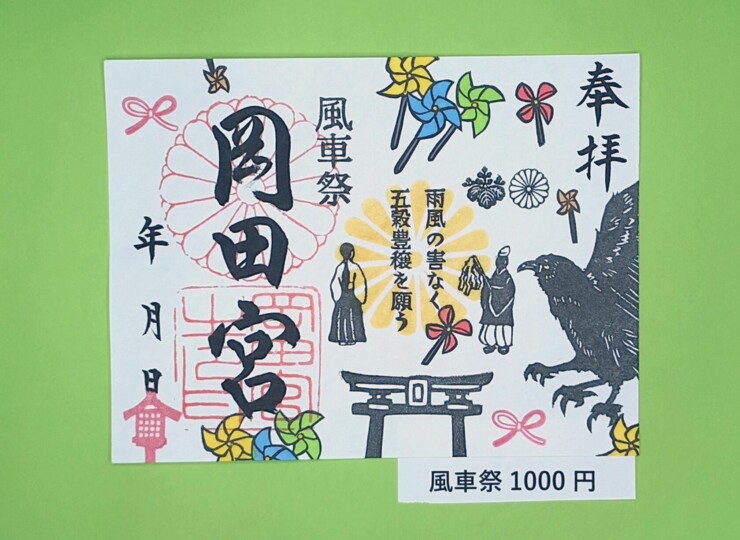 奉拝
雨風の害なく
五穀豊穣を願う
風車祭
岡田宮
年 月 日
風車祭 1000 円